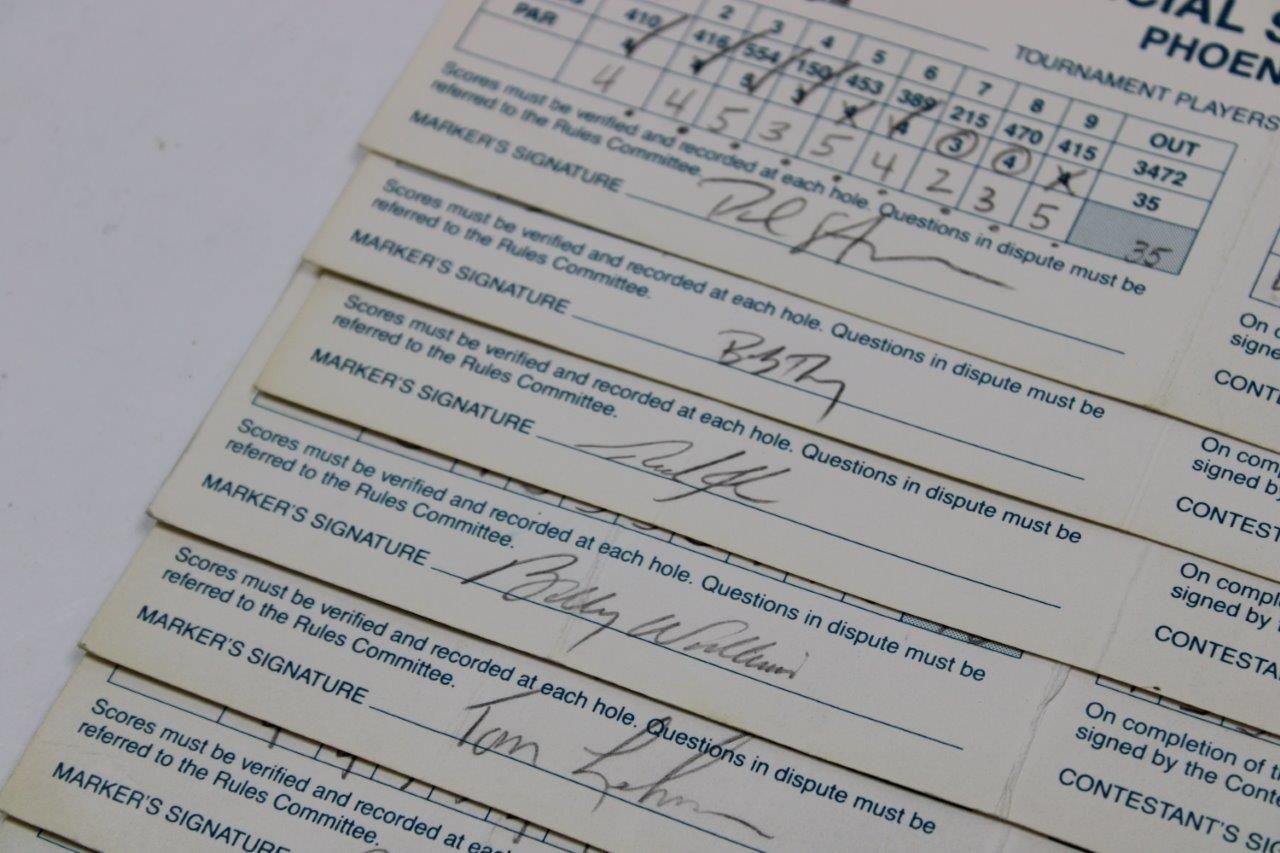 CIAL S
PHOEN
TOURNAMENT PLAYERS
2 3 4 5 6 7 8 9 OUT
410 416 554 150 453 389 215 470 415 3472
PAR 4 4 5 3 4 4 3 4 4 35
4 4 5 3 5 4 2 3 5 35
Scores must be verified and recorded at each hole. Questions in dispute must be
referred to the Rules Committee.
MARKER'S SIGNATURE
On c
signe
CONT
Scores must be verified and recorded at each hole. Questions in dispute must be
referred to the Rules Committee.
MARKER'S SIGNATURE
On comp
signed b
CONTEST
Scores must be verified and recorded at each hole. Questions in dispute must be
referred to the Rules Committee.
MARKER'S SIGNATURE
On compl
signed by
CONTESTA
Scores must be verified and recorded at each hole. Questions in dispute must be
referred to the Rules Committee.
MARKER'S SIGNATURE Bobby Wadkins
On completion of t
signed by the Conte
CONTESTANT'S SIG
Scores must be verified and recorded at each hole. Questions in dispute must be
referred to the Rules Committee.
MARKER'S SIGNATURE Tom Lehman
Scores must be verified and recorded at eac
referred to the Rules Committee.
MARKER'S SIGNATURE